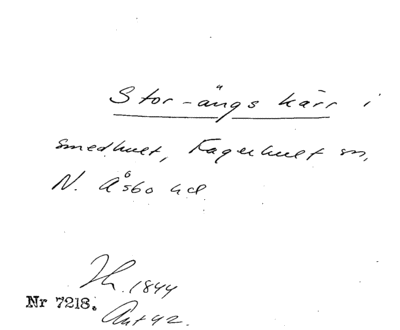 Stor-ängs kärr i
Smedhult, Fagerhult sn,
N. Åsbo hd.
Th. 1844
Nr 7218.
Ant 42.